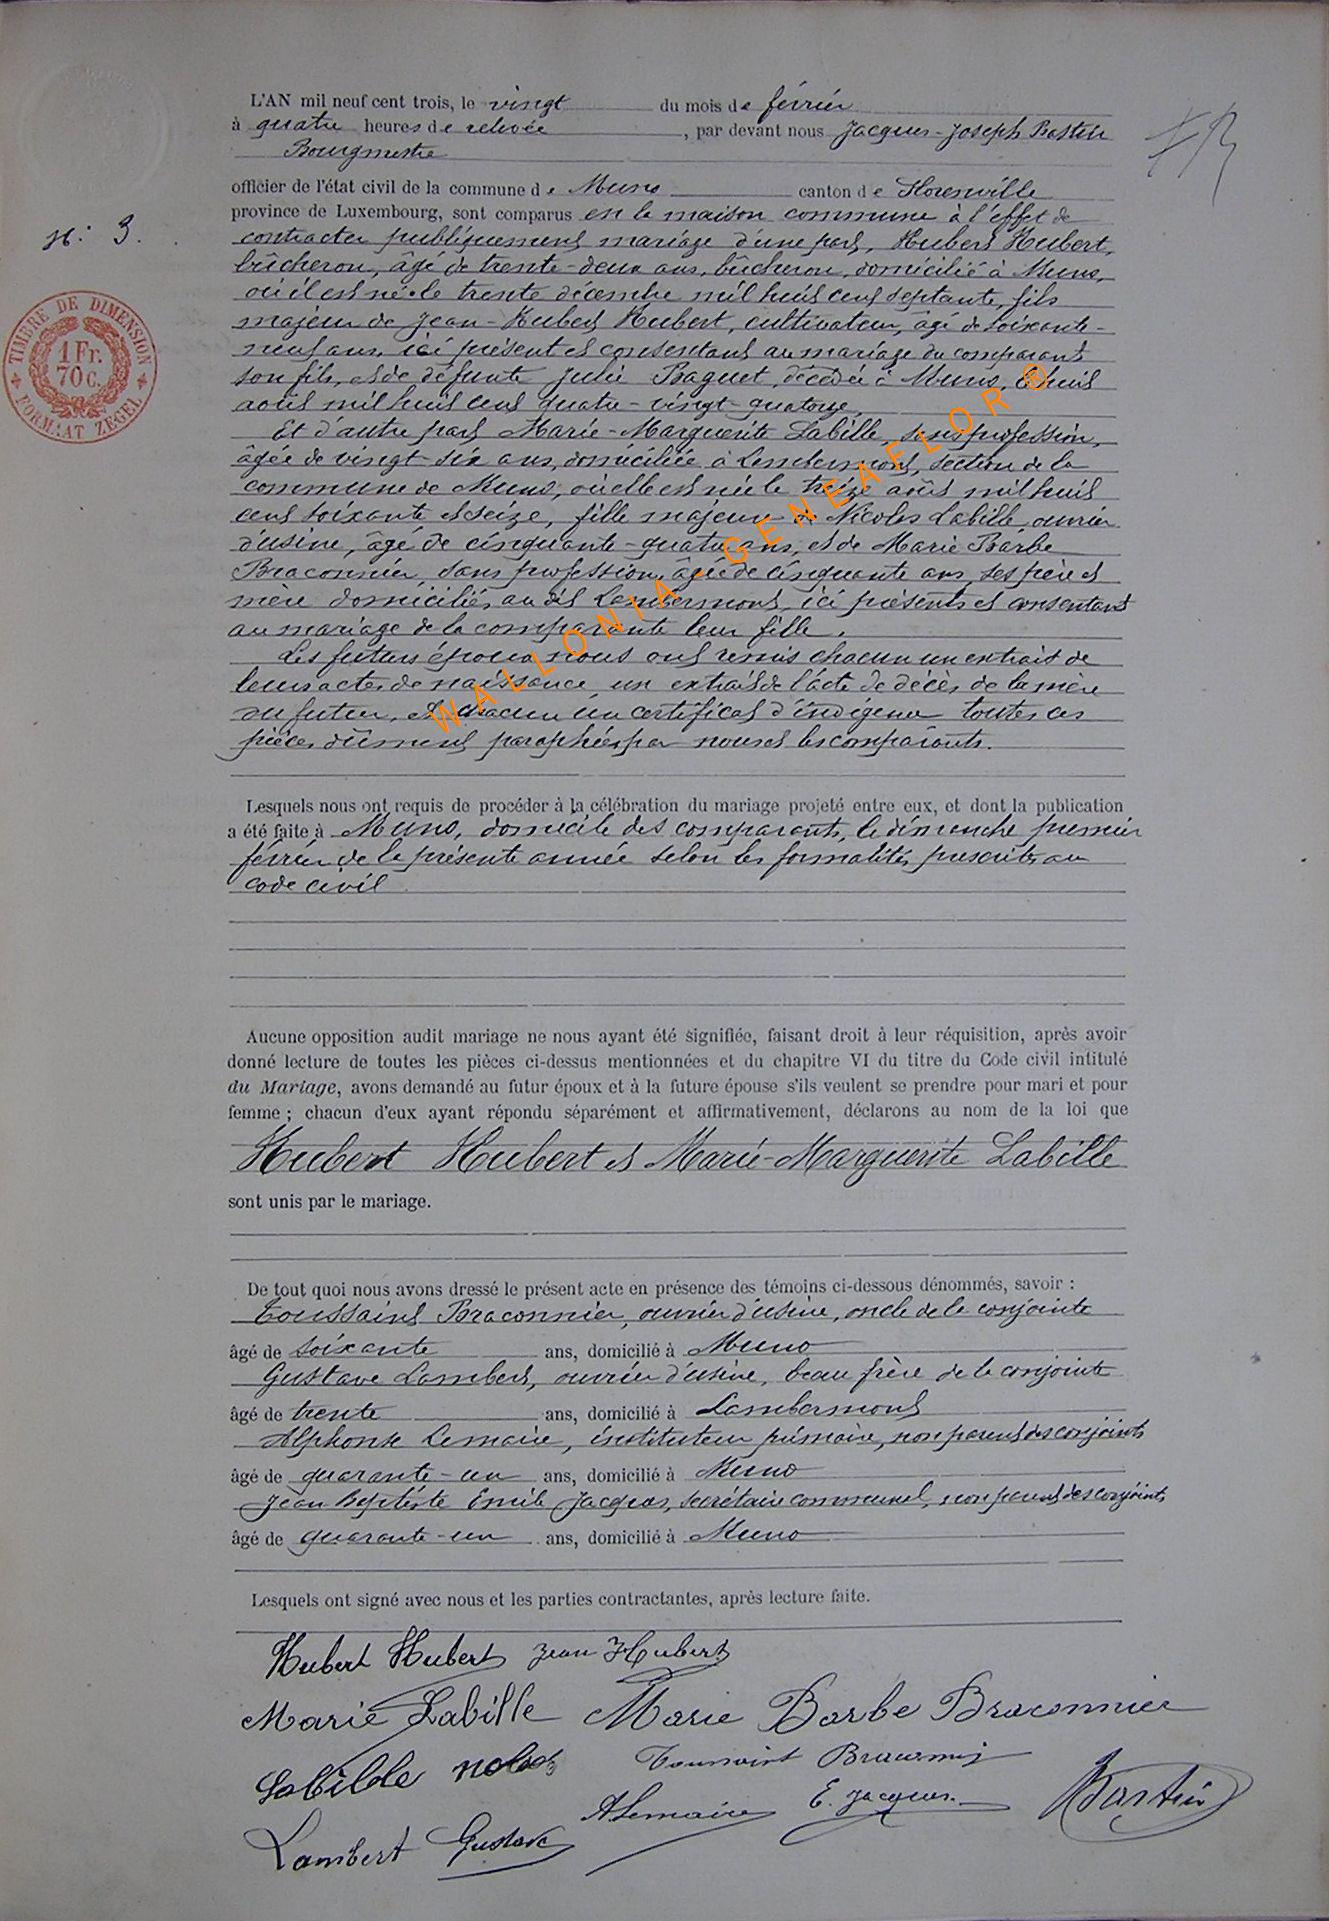 L'AN mil neuf cent trois, le vingt du mois de février
à quatre heures de relevée, par devant nous Jacques-Joseph Bastin
Bourgmestre
officier de l'état civil de la commune de Muno canton de Florenville
province de Luxembourg, sont comparus en la maison commune à l'effet de
N: 3.
contracter publiquement mariage d'une part, Hubert Hubert,
bûcheron, âgé de trente-deux ans, bûcheron, domicilié à Muno,
où il est né le trente décembre mil huit cent septante, fils
majeur de Jean-Hubert Hubert, cultivateur, âgé de soixante-
neuf ans, ici présent et consentant au mariage du comparant
son fils, et de défunte Julie Baguet, décédée à Muno, le huit
août mil huit cent quatre-vingt-quatorze,
Et d'autre part Marie-Marguerite Labille, sans profession,
âgée de vingt-six ans, domiciliée à Lambermont, section de la
commune de Muno, où elle est née le treize août mil huit
cent soixante et seize, fille majeure de Nicolas Labille, ouvrier
d'usine, âgé de cinquante-quatre ans, et de Marie Barbe
Braconnier, sans profession, âgée de cinquante ans, ses père et
mère domiciliés au dit Lambermont, ici présents et consentant
au mariage de la comparante leur fille.
Les futurs époux nous ont remis chacun un extrait de
leurs actes de naissance, un extrait de l'acte de décès de la mère
du futur, et chacun un certificat d'indigence toutes ces
pièces dûment paraphées par nous et les comparants.
TIMBRE DE DIMENSION
1 Fr.
70 C.
FORMAAT ZEGEL
WALLONIA - GENEAFLOR ®
Lesquels nous ont requis de procéder à la célébration du mariage projeté entre eux, et dont la publication
a été faite à Muno, domicile des comparants, le dimanche premier
février de la présente année selon les formalités prescrites au
code civil
Aucune opposition audit mariage ne nous ayant été signifiée, faisant droit à leur réquisition, après avoir
donné lecture de toutes les pièces ci-dessus mentionnées et du chapitre VI du titre du Code civil intitulé
du Mariage, avons demandé au futur époux et à la future épouse s'ils veulent se prendre pour mari et pour
femme ; chacun d'eux ayant répondu séparément et affirmativement, déclarons au nom de la loi que
Hubert Hubert et Marie-Marguerite Labille
sont unis par le mariage.
De tout quoi nous avons dressé le présent acte en présence des témoins ci-dessous dénommés, savoir :
Toussaint Braconnier, ouvrier d'usine, oncle de la conjointe
âgé de soixante ans, domicilié à Muno
Gustave Lambert, ouvrier d'usine, beau frère de la conjointe
âgé de trente ans, domicilié à Lambermont
Alphonse Lemaire, instituteur primaire, non parent des conjoints
âgé de quarante-un ans, domicilié à Muno
Jean Baptiste Emile Jacques, secrétaire communal, non parent des conjoints
âgé de quarante-un ans, domicilié à Muno
Lesquels ont signé avec nous et les parties contractantes, après lecture faite.
Hubert Hubert Jean Hubert
Marie Labille Marie Barbe Braconnier
Labille Toussaint Braconnier
ALemaire E. Jacques. Bastin
Lambert Gustave